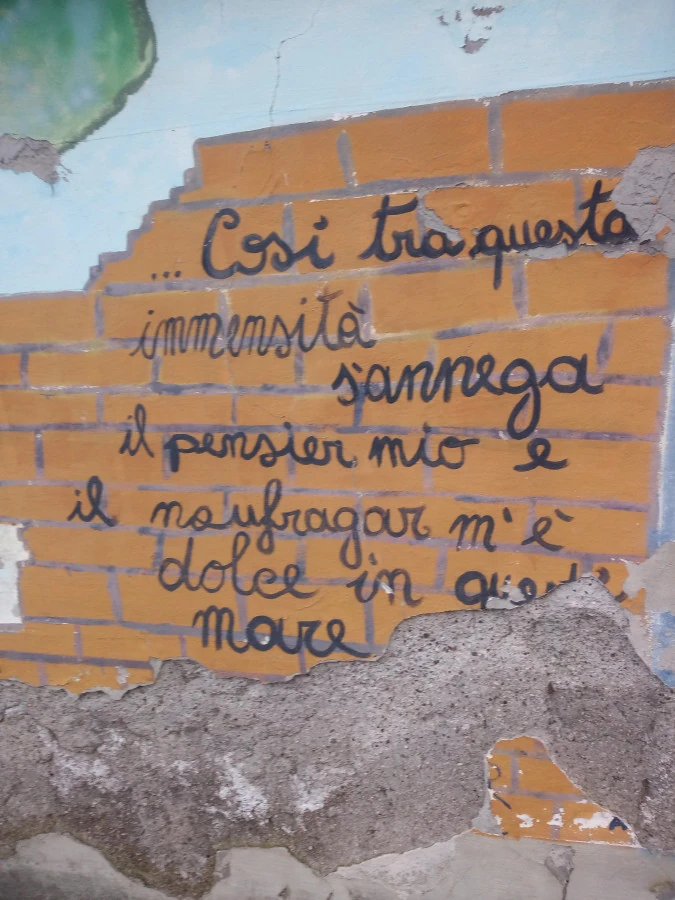 ... Così tra questa
immensità
s'annega
il pensier mio e
il naufragar m'è
dolce in
mare